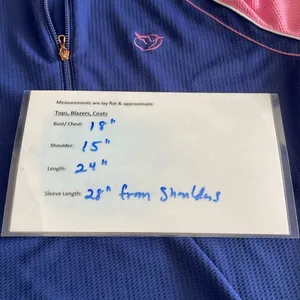 Measurements are lay flat & approximate:
Tops, Blazers, Coats
Bust/ Chest: 18"
Shoulder: 15"
Length: 24"
Sleeve Length: 28" from Shoulders